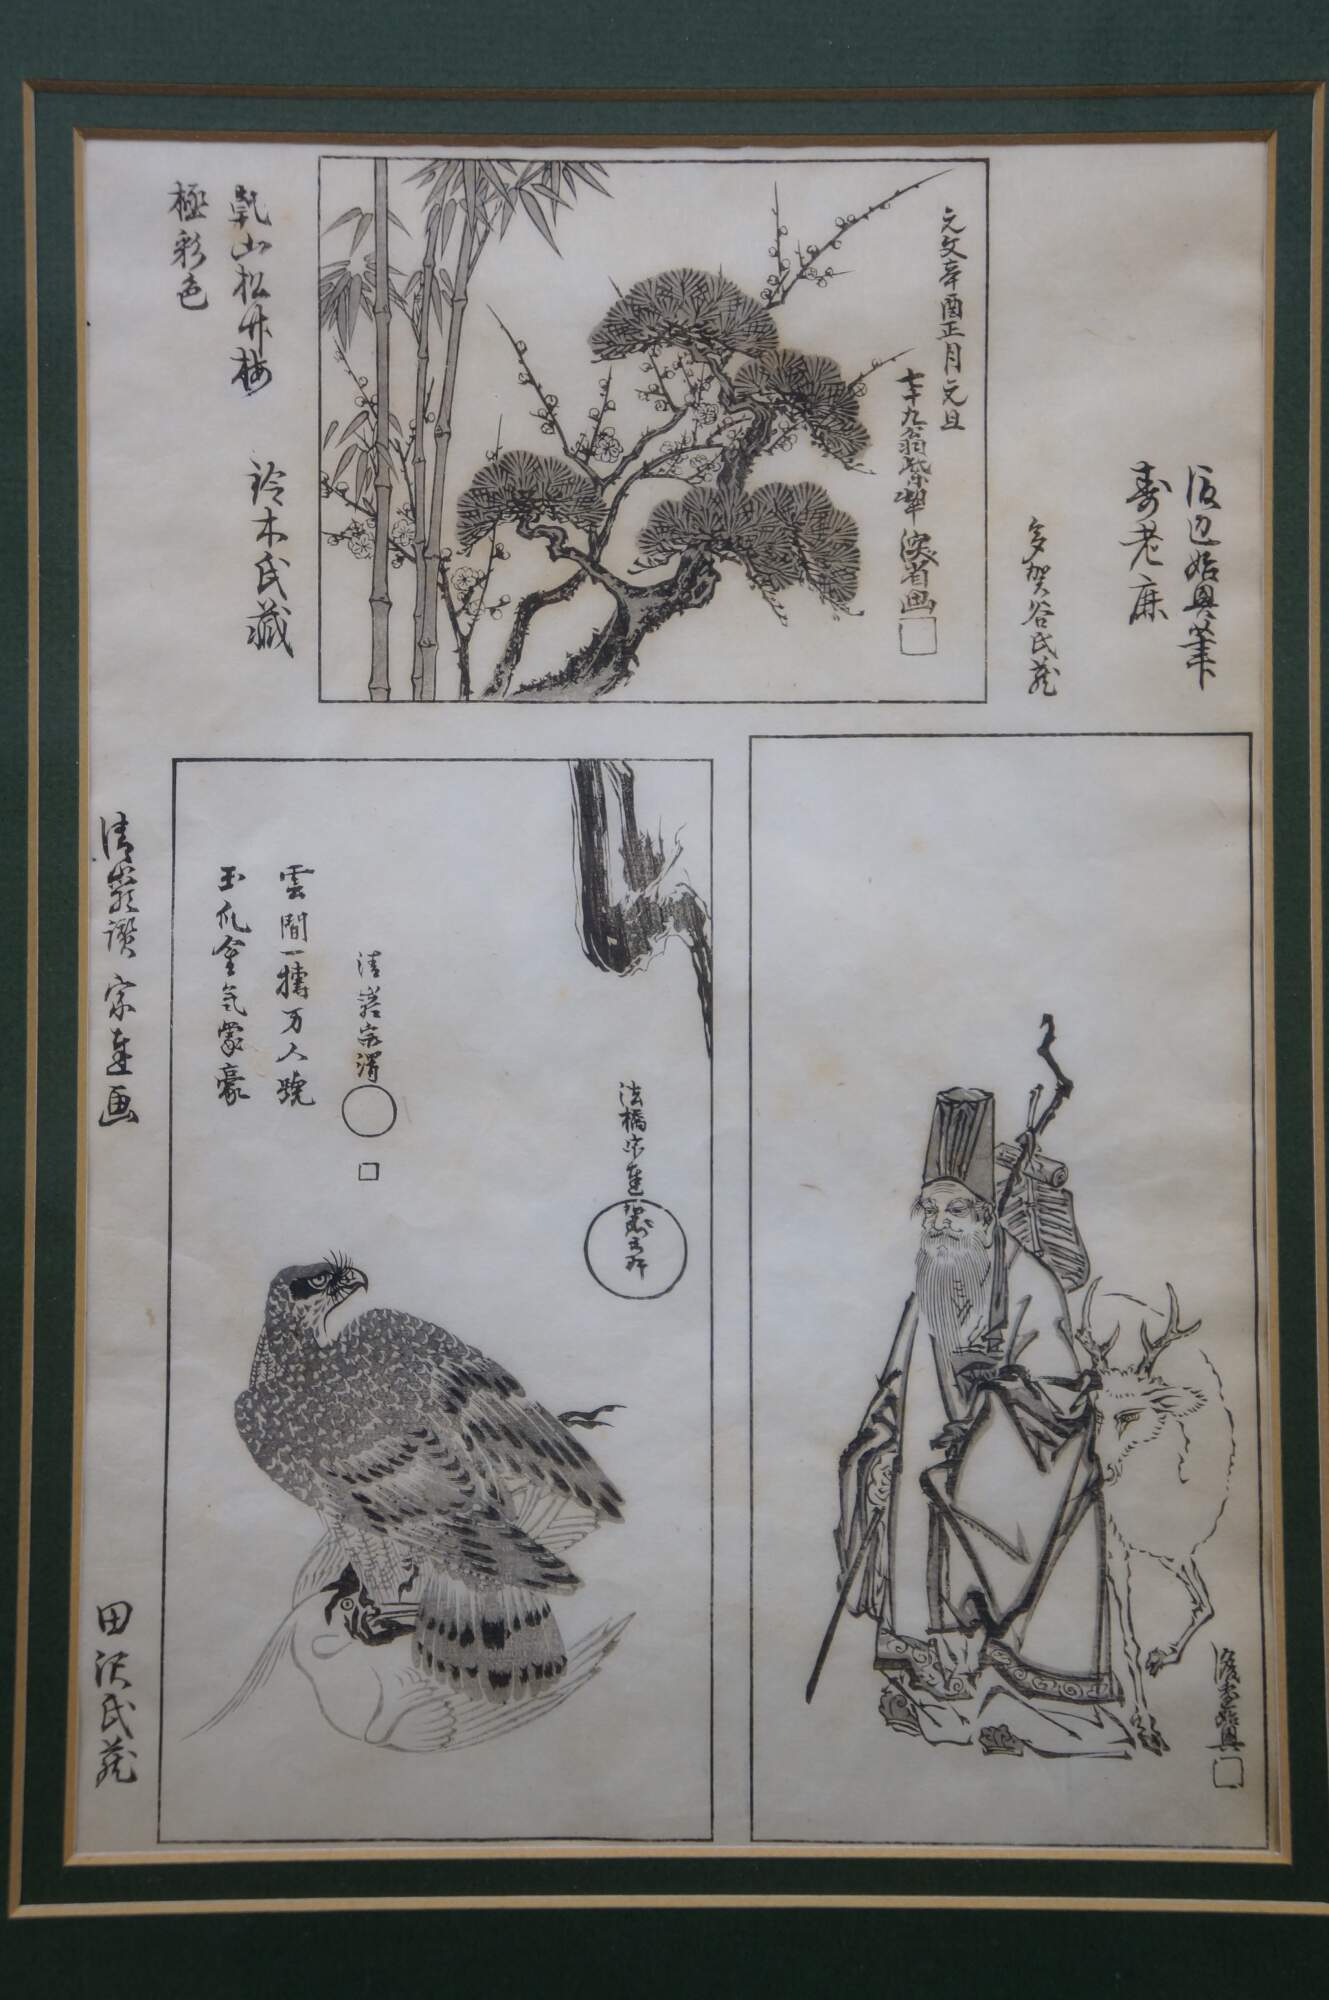 渡辺始興筆
寿老鹿
多賀谷氏蔵
元文辛酉正月元旦
七十九翁紫翠深省画
乾山松竹梅
極彩色
鈴木氏蔵
渡辺始興
法橋宗達
清巌宗渭
雲間一
万人
玉爪金
豪
清巌讃宗達画
田沢氏蔵